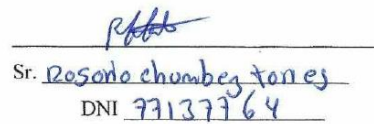 Sr. Rosorio chumbez torres
DNI 77137764